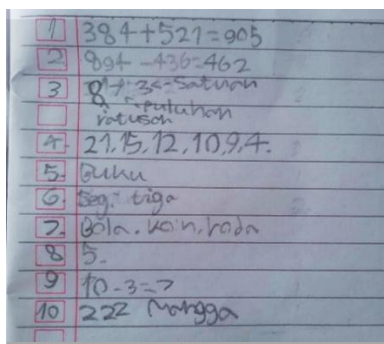 1 384+521=905
2 894-436=462
3 873 satuan
puluhan
ratusan
4. 21, 15, 12, 10, 9, 4.
5. Buku
6. Seg. tiga
7. Bola. koin, roda
8 5.
9 10-3=7
10 222 Mangga